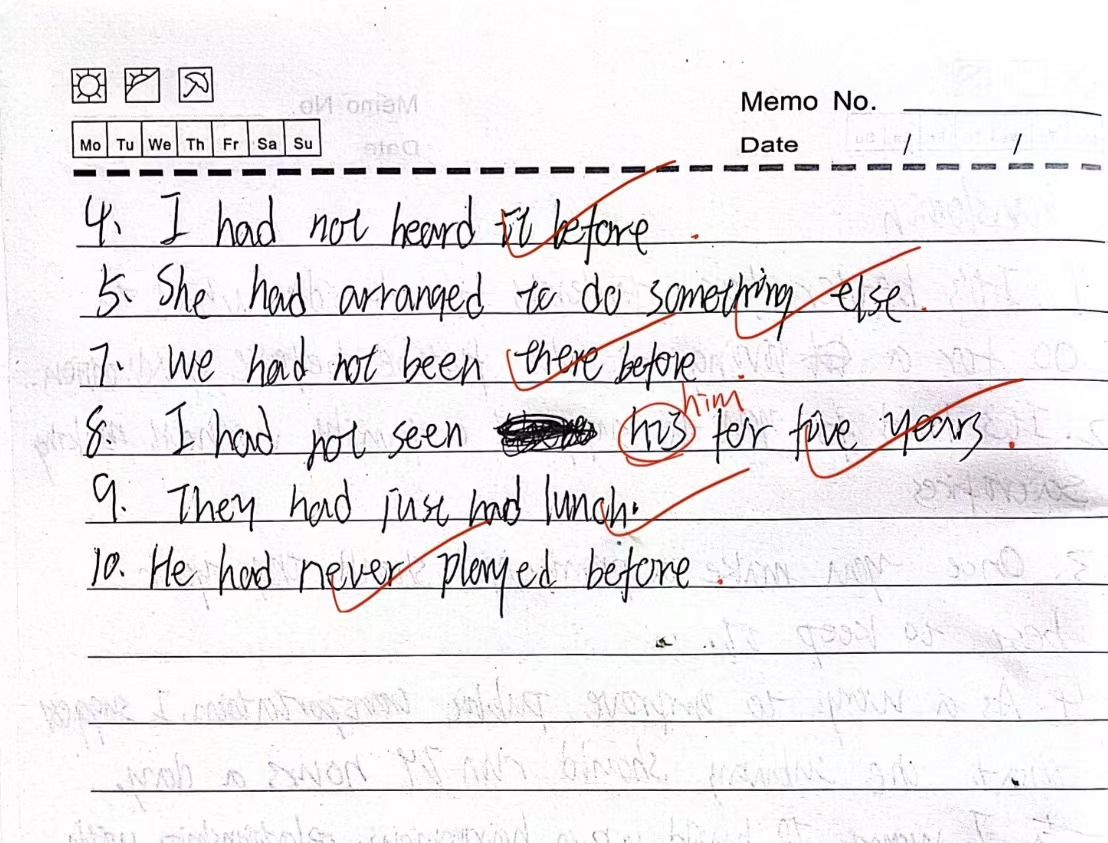 Memo No.
Mo Tu We Th Fr Sa Su
Date / /
4. I had not heard it before.
5. She had arranged to do something else.
7. We had not been there before.
him
8. I had not seen his for five years.
9. They had just had lunch.
10. He had never played before.